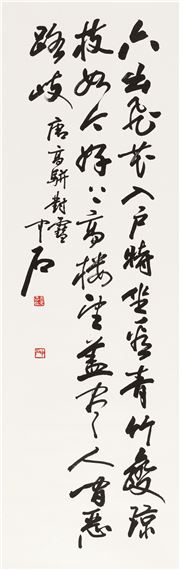 六出飛花入户時坐看青竹變琼
枝如今好上高楼望蓋尽人间惡
路歧
唐高駢對雪
中石